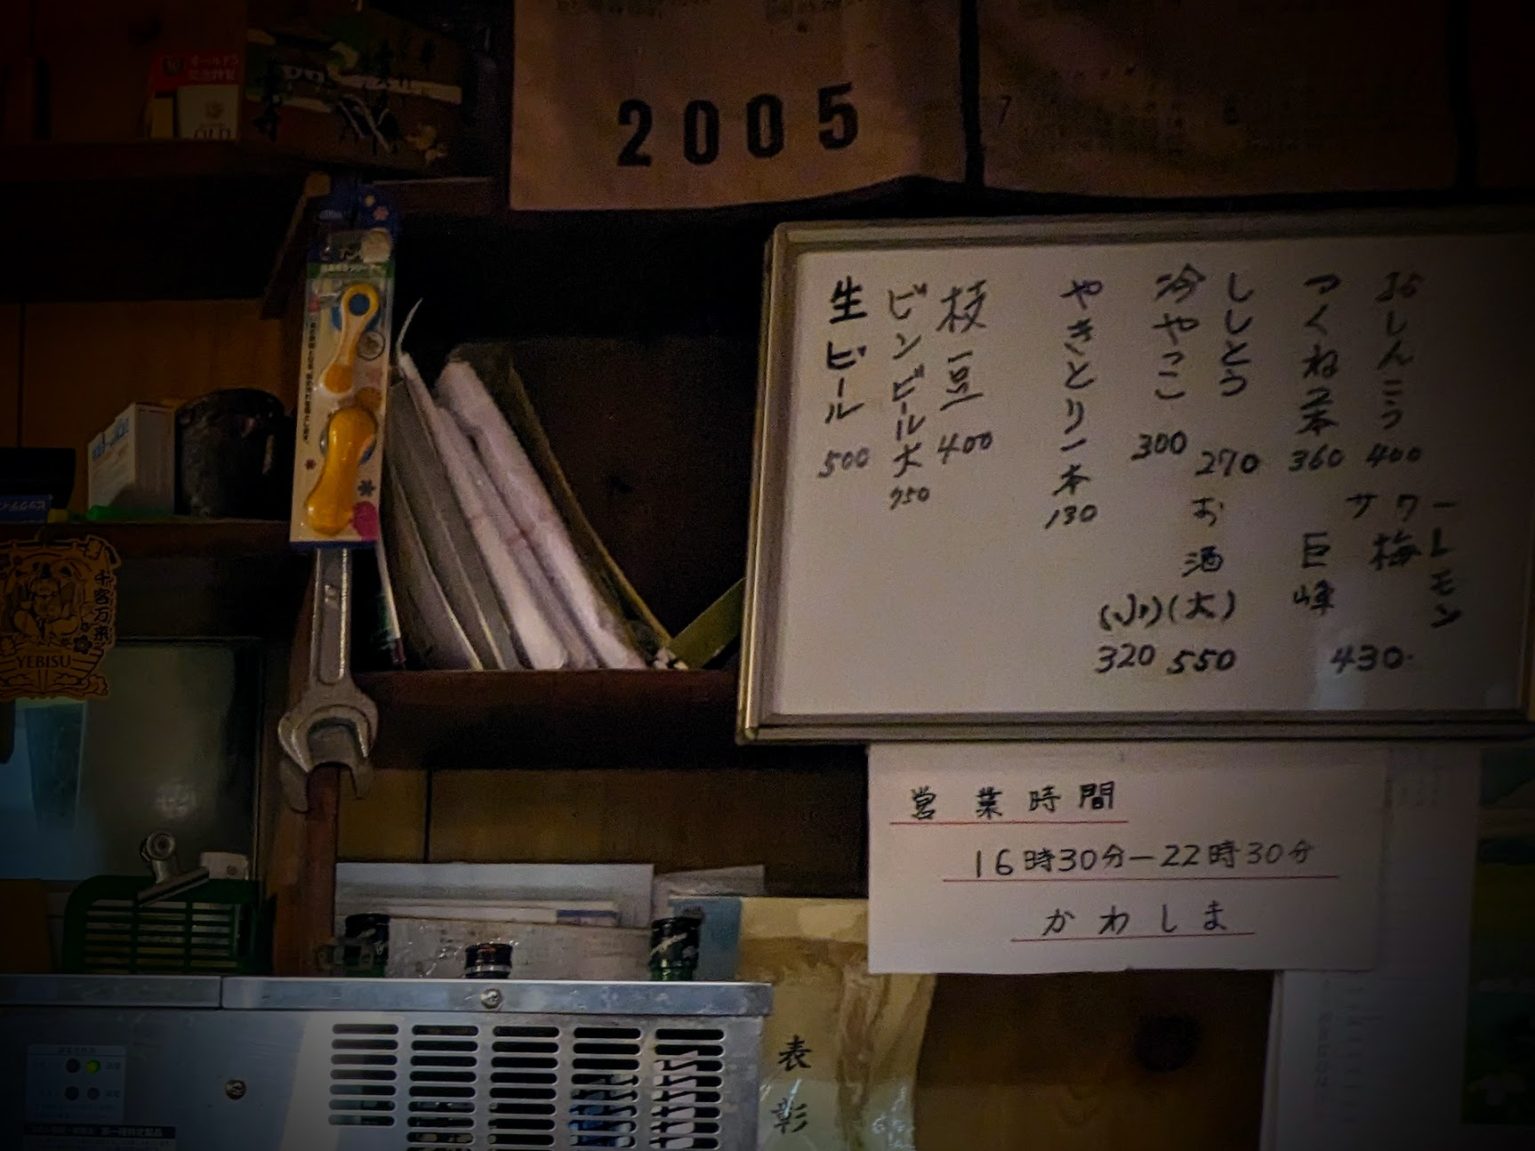 2005
7
おしんこう 400
つくね2本 360
ししとう 270
冷やっこ 300
やきとり一本 130
枝豆 400
ビンビール大 750
生ビール 500
サワー
レモン
梅
巨峰
430
お酒
(小)(大)
320 550
営業時間
16時30分ー22時30分
かわしま
千客万来
YEBISU
OLD
表彰